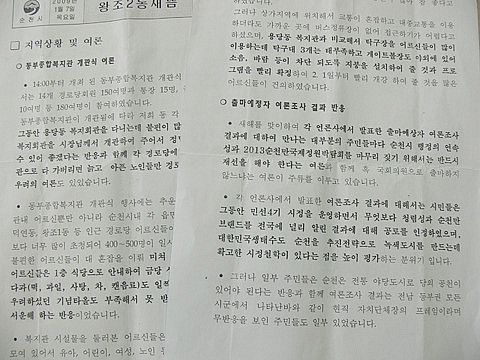 순천시
2009년
1월 7일
목요일
왕조2동새뜸
□ 지역상황 및 여론
◆ 동부종합복지관 개관식 여론
• 14:00부터 개최 된 동부종합복지관 개관식
서는 14개 경로당회원 150여명과 통장 15명,
10여명 등 180여명이 참여하였습니다.
동부종합복지관이 개관됨에 따라 저희 동 각
그동안 용당동 복지회관을 다니는데 불편이 많
복지회관을 시장님께서 개관하여 주어서 정
수 있어 좋겠다는 반응과 함께 각 경로당에
관으로 다 가버리면 늙고 아픈 노인들만 경
우려의 여론도 있었습니다.
• 동부종합복지관 개관식 행사에는 추운
관내 어르신뿐만 아니라 순천시내 각 읍면
덕연동, 왕조1동 등 인근 경로당 어르신이
보다 너무 많이 초청되어 400~500명이 일시
불편한 어르신이 대 혼잡을 이뤄 미처
어르신들은 1층 식당으로 안내하여 금당
다과(떡, 과일, 사탕, 차, 캔음료)도 일찍
우려하셨던 기념타올도 부족해서 못 받
서운해 하는 반응이었습니다.
• 복지관 시설물을 둘러본 어르신들은
모여 있어서 유아, 어린이, 여성, 노인
그러나 상가지역에 위치해서 교통이 혼잡하고 대중교통을 이용
하더라도 가까운 곳에 버스정류장이 없어 접근하기가 어렵다고
하셨으며, 용당동 복지관과 비교해서 탁구장을 어르신들이 많이
이용하는데 탁구대 3개는 태부족하고 게이트볼장도 야외에 있어
소음, 바람 등이 차단 되도록 지붕을 설치하여 줄 것과 프로
그램을 빨리 확정하여 2. 1일부터 빨리 개강 하여 줄 것을 많은
어르신들이 건의하였습니다.
◆ 출마예정자 여론조사 결과 반응
• 새해를 맞이하여 각 언론사에서 발표한 출마예상자 여론조사
결과에 대하여 만나는 대부분의 주민들마다 순천시 행정의 연속
성과 2013순천만국제정원박람회를 마무리 짓기 위해서는 반드시
재선을 해야 한다는 여론과 함께 혹 국회의원으로 출마하지
않느냐는 여론이 주류를 이루고 있습니다.
• 각 언론사에서 발표한 여론조사 결과에 대해서는 시민들은
그동안 민선4기 시정을 운영하면서 무엇보다 청렴성과 순천만
브랜드를 전국에 널리 알린 결과에 대해 공포를 인정하였으며,
대한민국생태수도 순천을 추진전략으로 녹색도시를 만드는데
확고한 시정철학이 있다는 점을 높이 평가하는 분위기 입니다.
• 그러나 일부 주민들은 순천은 전통 야당도시로 당의 공천이
있어야 된다는 반응과 함께 여론조사 결과는 전남 동부권 모든
시군에서 나타난바와 같이 현직 자치단체장의 프레임이라며
무반응을 보인 주민들도 일부 있었습니다.